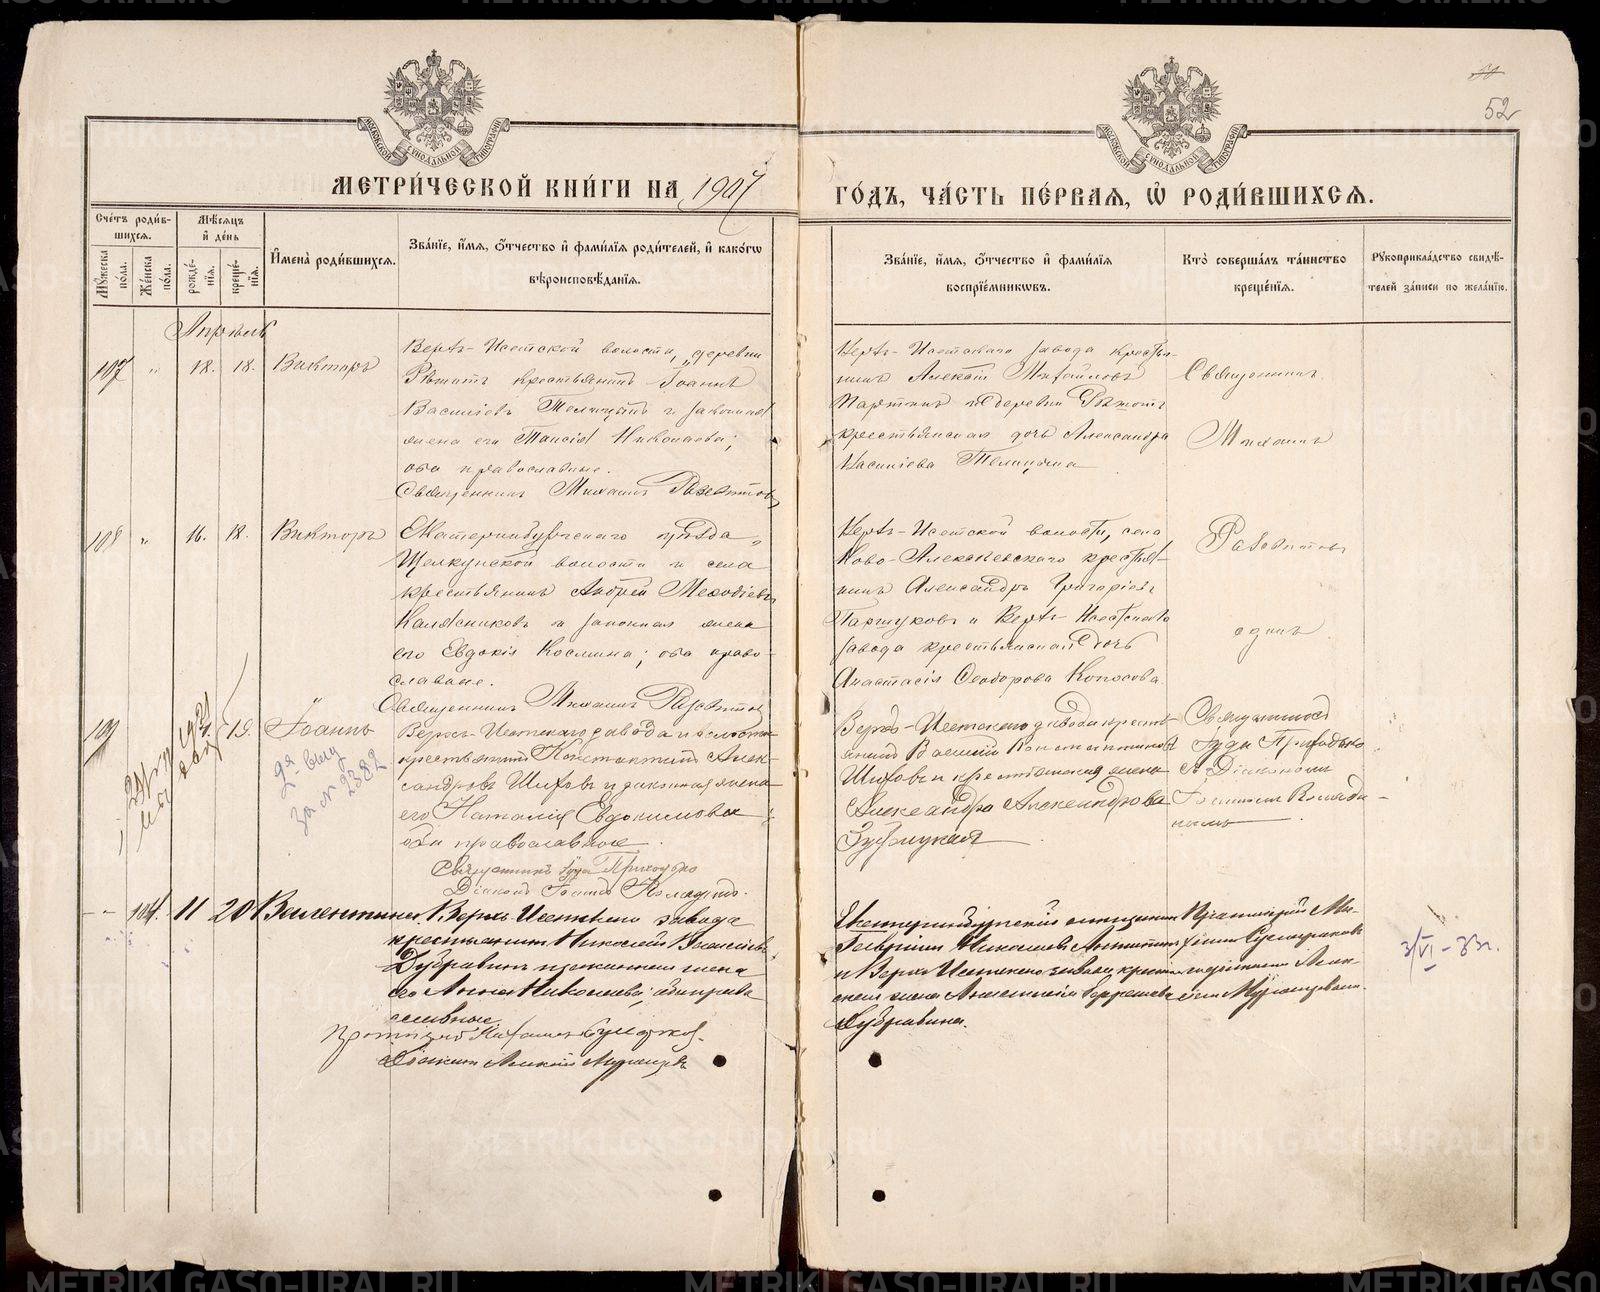 52
МОСКОВСКОЙ СѴНОДАЛЬНОЙ ТИПОГРАФІИ
МОСКОВСКОЙ СѴНОДАЛЬНОЙ ТИПОГРАФІИ
МЕТРИ́ЧЕСКОЙ КНИ́ГИ НА 1907
ГО́ДЪ, ЧА́СТЬ ПЕ́РВАЯ, Ѽ РОДИ́ВШИХСЯ.
Сче́тъ роди́в-
шихся.
Му́жеска
по́ла.
Же́нска
по́ла.
Мѣ́сяцъ
и҆ де́нь
рожде́-
нїя.
креще́-
нїя.
И҆мена̀ роди́вшихся.
Зва́нїе, и҆́мя, ѻ҆́тчество и҆ фами́лїя роди́телей, и҆ како́гѡ
вѣроисповѣ́данїя.
Зва́нїе, и҆́мя, ѻ҆́тчество и҆ фами́лїя
воспрїе́мникѡвъ.
Кто̀ соверша́лъ та́инство
креще́нїя.
Рꙋкоприкла́дство свидѣ́-
телей за́писи по жела́нїю.
Апрѣль
107 „ 18. 18. Викторъ
Верхъ-Исетской волости, деревни
Рѣшотъ крестьянинъ Іоаннъ
Васильевъ Телицынъ и законная
жена его Таисія Николаева;
оба православные.
Священникъ Михаилъ
Верхъ-Исетскаго завода крестья-
нинъ Алексѣй Михайловъ
деревни Рѣшотъ
крестьянская дочь Александра
Васильева Телицына
Священникъ
Михаилъ
одинъ
108 „ 16. 18. Викторъ
Екатеринбургскаго уѣзда,
Щелкунской волости и села
крестьянинъ Андрей Меѳодіевъ
Калясниковъ и законная жена
его Евдокія Косьмина; оба право-
славные.
Священникъ Михаилъ
Верхъ-Исетской волости, села
Ново-Алексѣевскаго крестья-
нинъ Александръ Григорьевъ
Паршуковъ и Верхъ-Исетскаго
завода крестьянская дочь
Анастасія Ѳеодорова Копосова.
109 19. Іоаннъ
2382
Верхъ-Исетскаго завода и волости
крестьянинъ Константинъ Алек-
сандровъ Шитовъ и законная жена
его Наталія Евдокимова
оба православные.
Священникъ Іуда Приходько
Діаконъ Іоаннъ
Верхъ-Исетскаго завода кресть-
янинъ Василій Константиновъ
Шитовъ и крестьянская жена
Александра Александрова
Зубрицкая
Священникъ
Іуда Приходько
съ Діакономъ
Іоанномъ
104. 11 20 Валентина
Верхъ-Исетскаго завода
крестьянинъ Николай Васильевъ
Дубравинъ и законная жена
его Анна Николаева; оба право
славные
Діаконъ Алексій
Екатеринбургскій мѣщанинъ
Николаевъ
и Верхъ-Исетскаго завода
жена
Дубравина.
Протоіерей Ми-
3/VI-33г.
METRIKI.GASO-URAL.RU